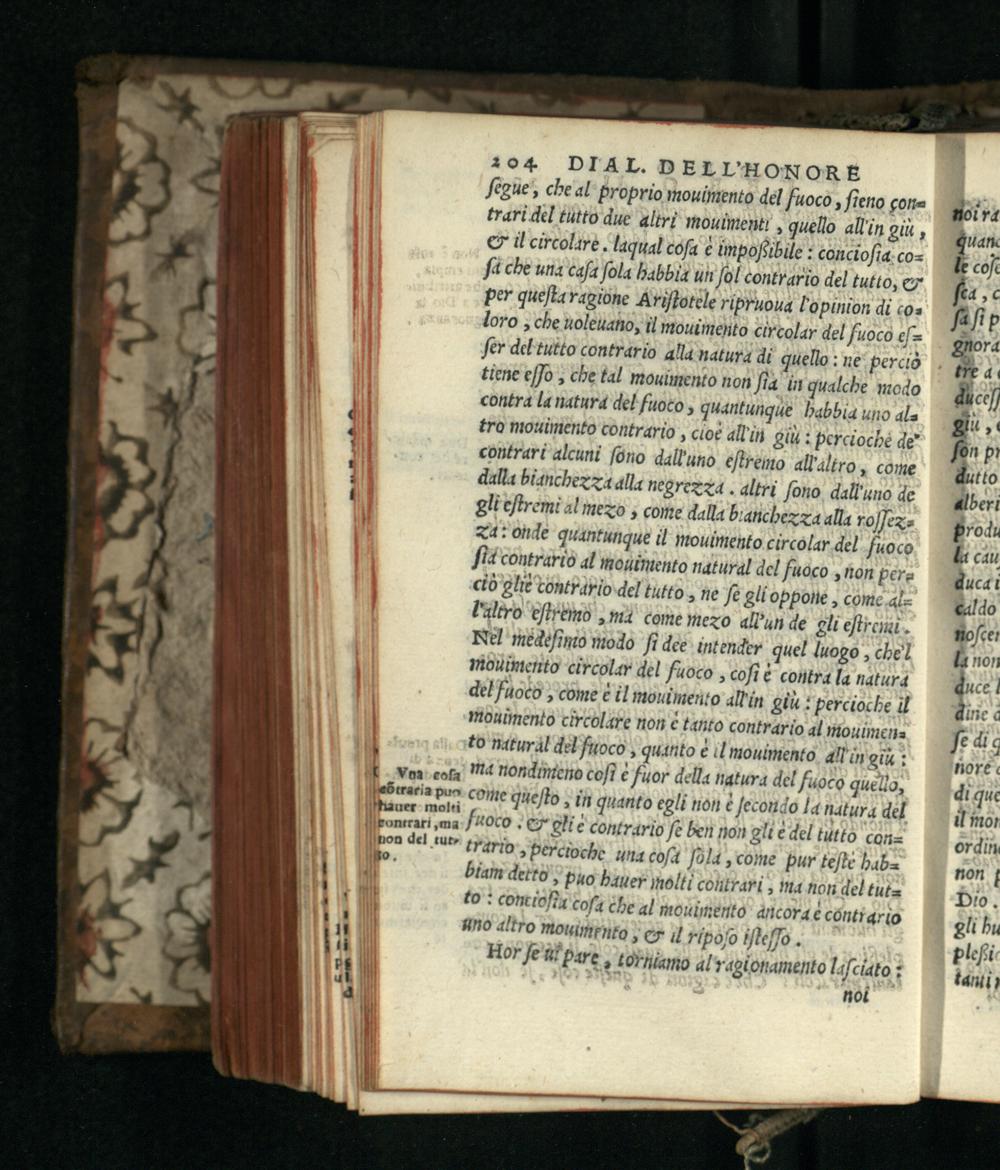 204 DIAL. DELL'HONORE
ſegue, che al proprio mouimento del fuoco, ſieno con=
trari del tutto due altri mouimenti, quello all'in giù,
& il circolare. laqual coſa è impoßibile: concioſia co=
ſa che una caſa ſola habbia un ſol contrario del tutto, &
per queſta ragione Ariſtotele ripruoua l'opinion di co=
loro, che uoleuano, il mouimento circolar del fuoco eſ=
ſer del tutto contrario alla natura di quello: ne perciò
tiene eſſo, che tal mouimento non ſia in qualche modo
contra la natura del fuoco, quantunque habbia uno al=
tro mouimento contrario, cioè all'in giù: percioche de'
contrari alcuni ſono dall'uno eſtremo all'altro, come
dalla bianchezza alla negrezza. altri ſono dall'uno de
gli eſtremi al mezo, come dalla bianchezza alla roſſez=
za: onde quantunque il mouimento circolar del fuoco
ſia contrario al mouimento natural del fuoco, non per=
ciò gliè contrario del tutto, ne ſe gli oppone, come al=
l'altro eſtremo, ma come mezo all'un de gli eſtremi.
Nel medeſimo modo ſi dee intender quel luogo, che'l
mouimento circolar del fuoco, coſi è contra la natura
del fuoco, come è il mouimento all'in giù: percioche il
mouimento circolare non è tanto contrario al mouimen=
to natural del fuoco, quanto è il mouimento all'in giù:
ma nondimeno coſi è fuor della natura del fuoco quello,
come queſto, in quanto egli non è ſecondo la natura del
fuoco. & gli è contrario ſe ben non gli è del tutto con=
trario, percioche una coſa ſola, come pur teſte hab=
biam detto, puo hauer molti contrari, ma non del tut=
to: concioſia coſa che al mouimento ancora è contrario
uno altro mouimento, & il ripoſo iſteſſo.
Hor ſe ui pare, torniamo al ragionamento laſciato:
noi
Vna coſa
cōtraria puo
hauer molti
contrari, ma
non del tut-
to.
noi ra
quan
le coſe
ſca, c
ſa ſi p
gnora
tre a
duceſſ
giù, e
ſon pr
dutto
alberi
produ
la cau
duca i
caldo
noſcer
la non
duce l
dine a
ſe di q
nore
di que
il mon
ordin
non p
Dio.
gli hu
pleßio
tanti